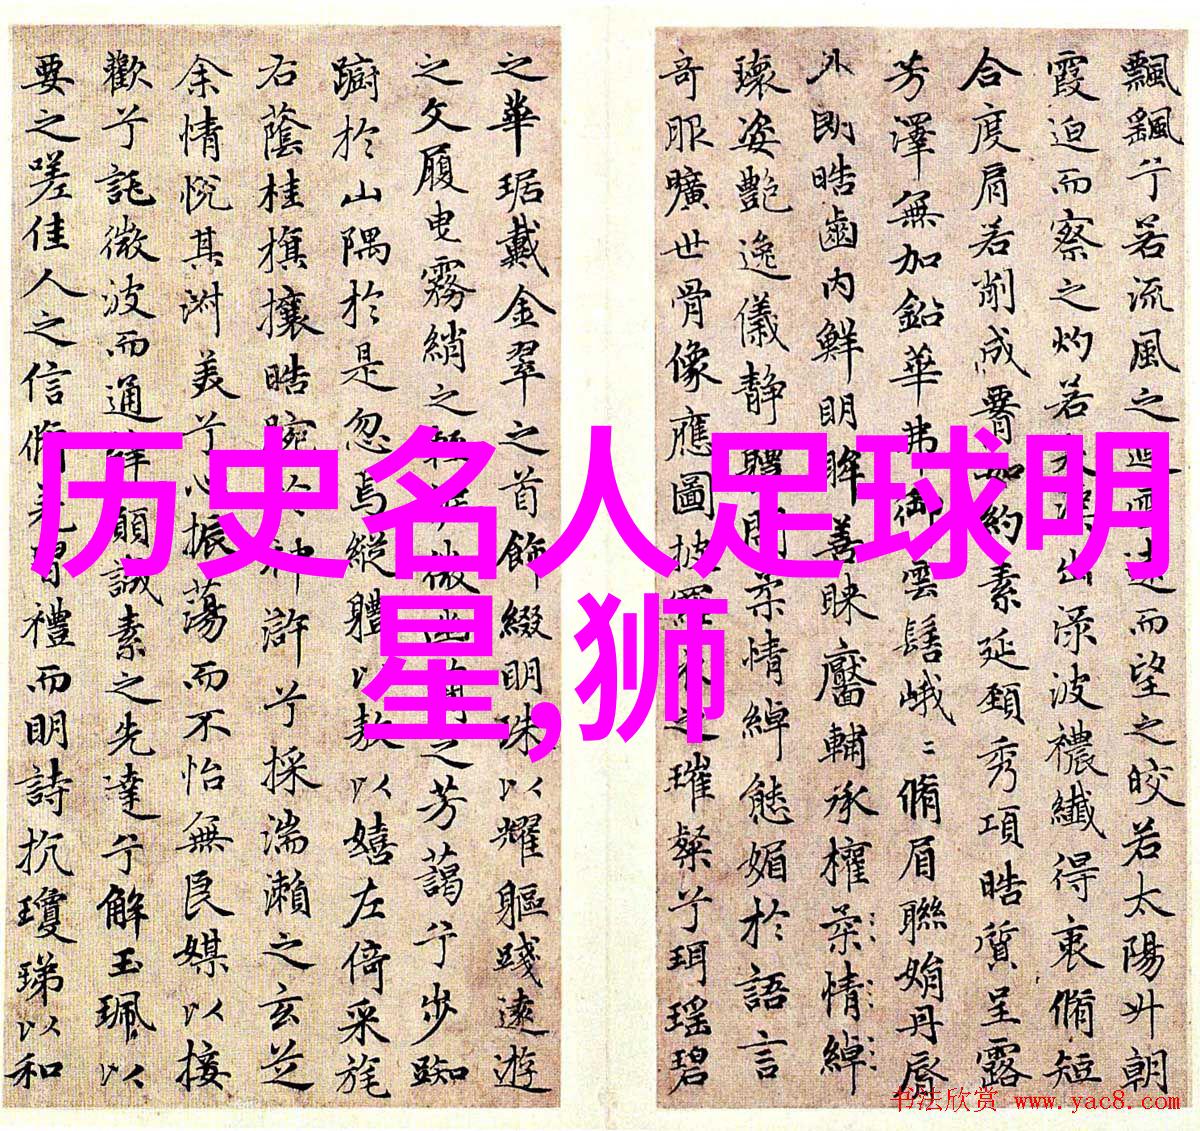 飄飖兮若流風之迴雪遠而望之皎若太陽升朝
霞迫而察之灼若出渌波襛纖得衷脩短
合度肩若削成腰如約素延頸秀項皓質呈露
芳澤無加鉛華弗御雲髻峨〻脩眉聯娟丹脣
外朗皓齒内鮮明眸善睞靨輔承權柔情綽
瓌姿艷逸儀静體閑柔情綽態媚於語言
奇服曠世骨像應圖披羅衣之璀粲兮珥瑤碧
之華琚戴金翠之首飾綴明珠以耀軀踐遠遊
之文履曳霧綃之輕裾微幽蘭之芳藹兮步踟
蹰於山隅於是忽焉縱體以敖以嬉左倚采旄
右蔭桂旗攘皓腕於神滸兮採湍瀨之玄芝
余情悦其淑美兮心振蕩而不怡無良媒以接
歡兮託微波而通辭願誠素之先達兮解玉珮以
要之嗟佳人之信脩羌習禮而明詩抗瓊珶以和
历史名人足球明
星,狮
书法欣赏 www.yac8.com